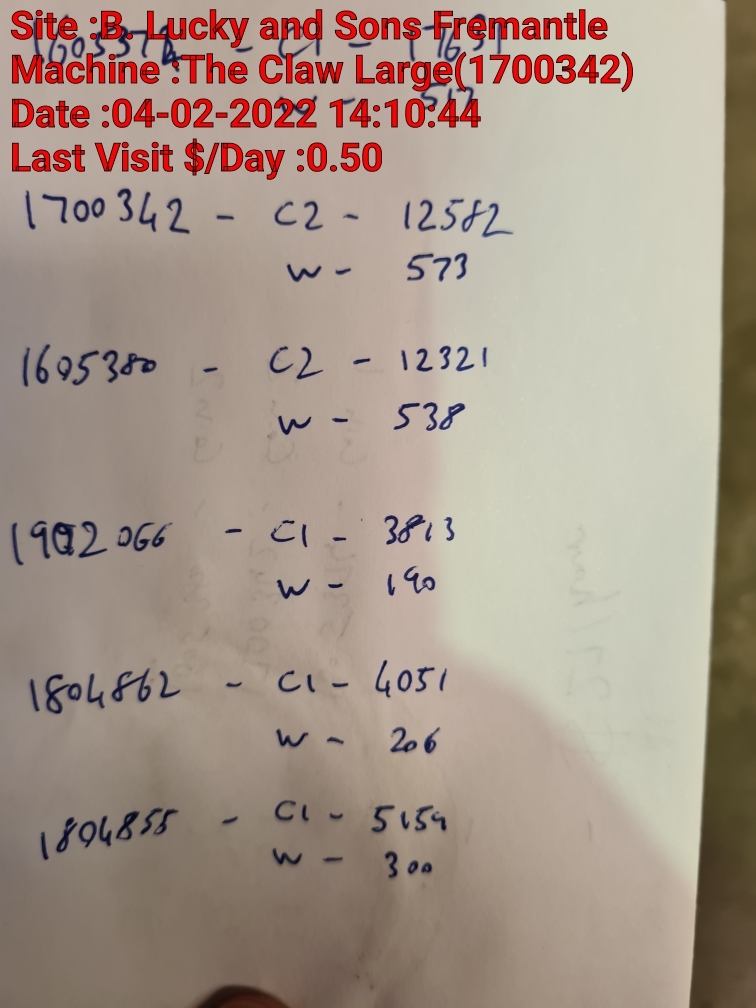 Site :B. Lucky and Sons Fremantle
Machine :The Claw Large(1700342)
Date :04-02-2022 14:10:44
Last Visit $/Day :0.50
1700342 - C2 - 12582
W - 573
1605380 - C2 - 12321
W - 538
1902066 - C1 - 3813
W - 190
1804862 - C1 - 4051
W - 206
1804855 - C1 - 5159
W - 300